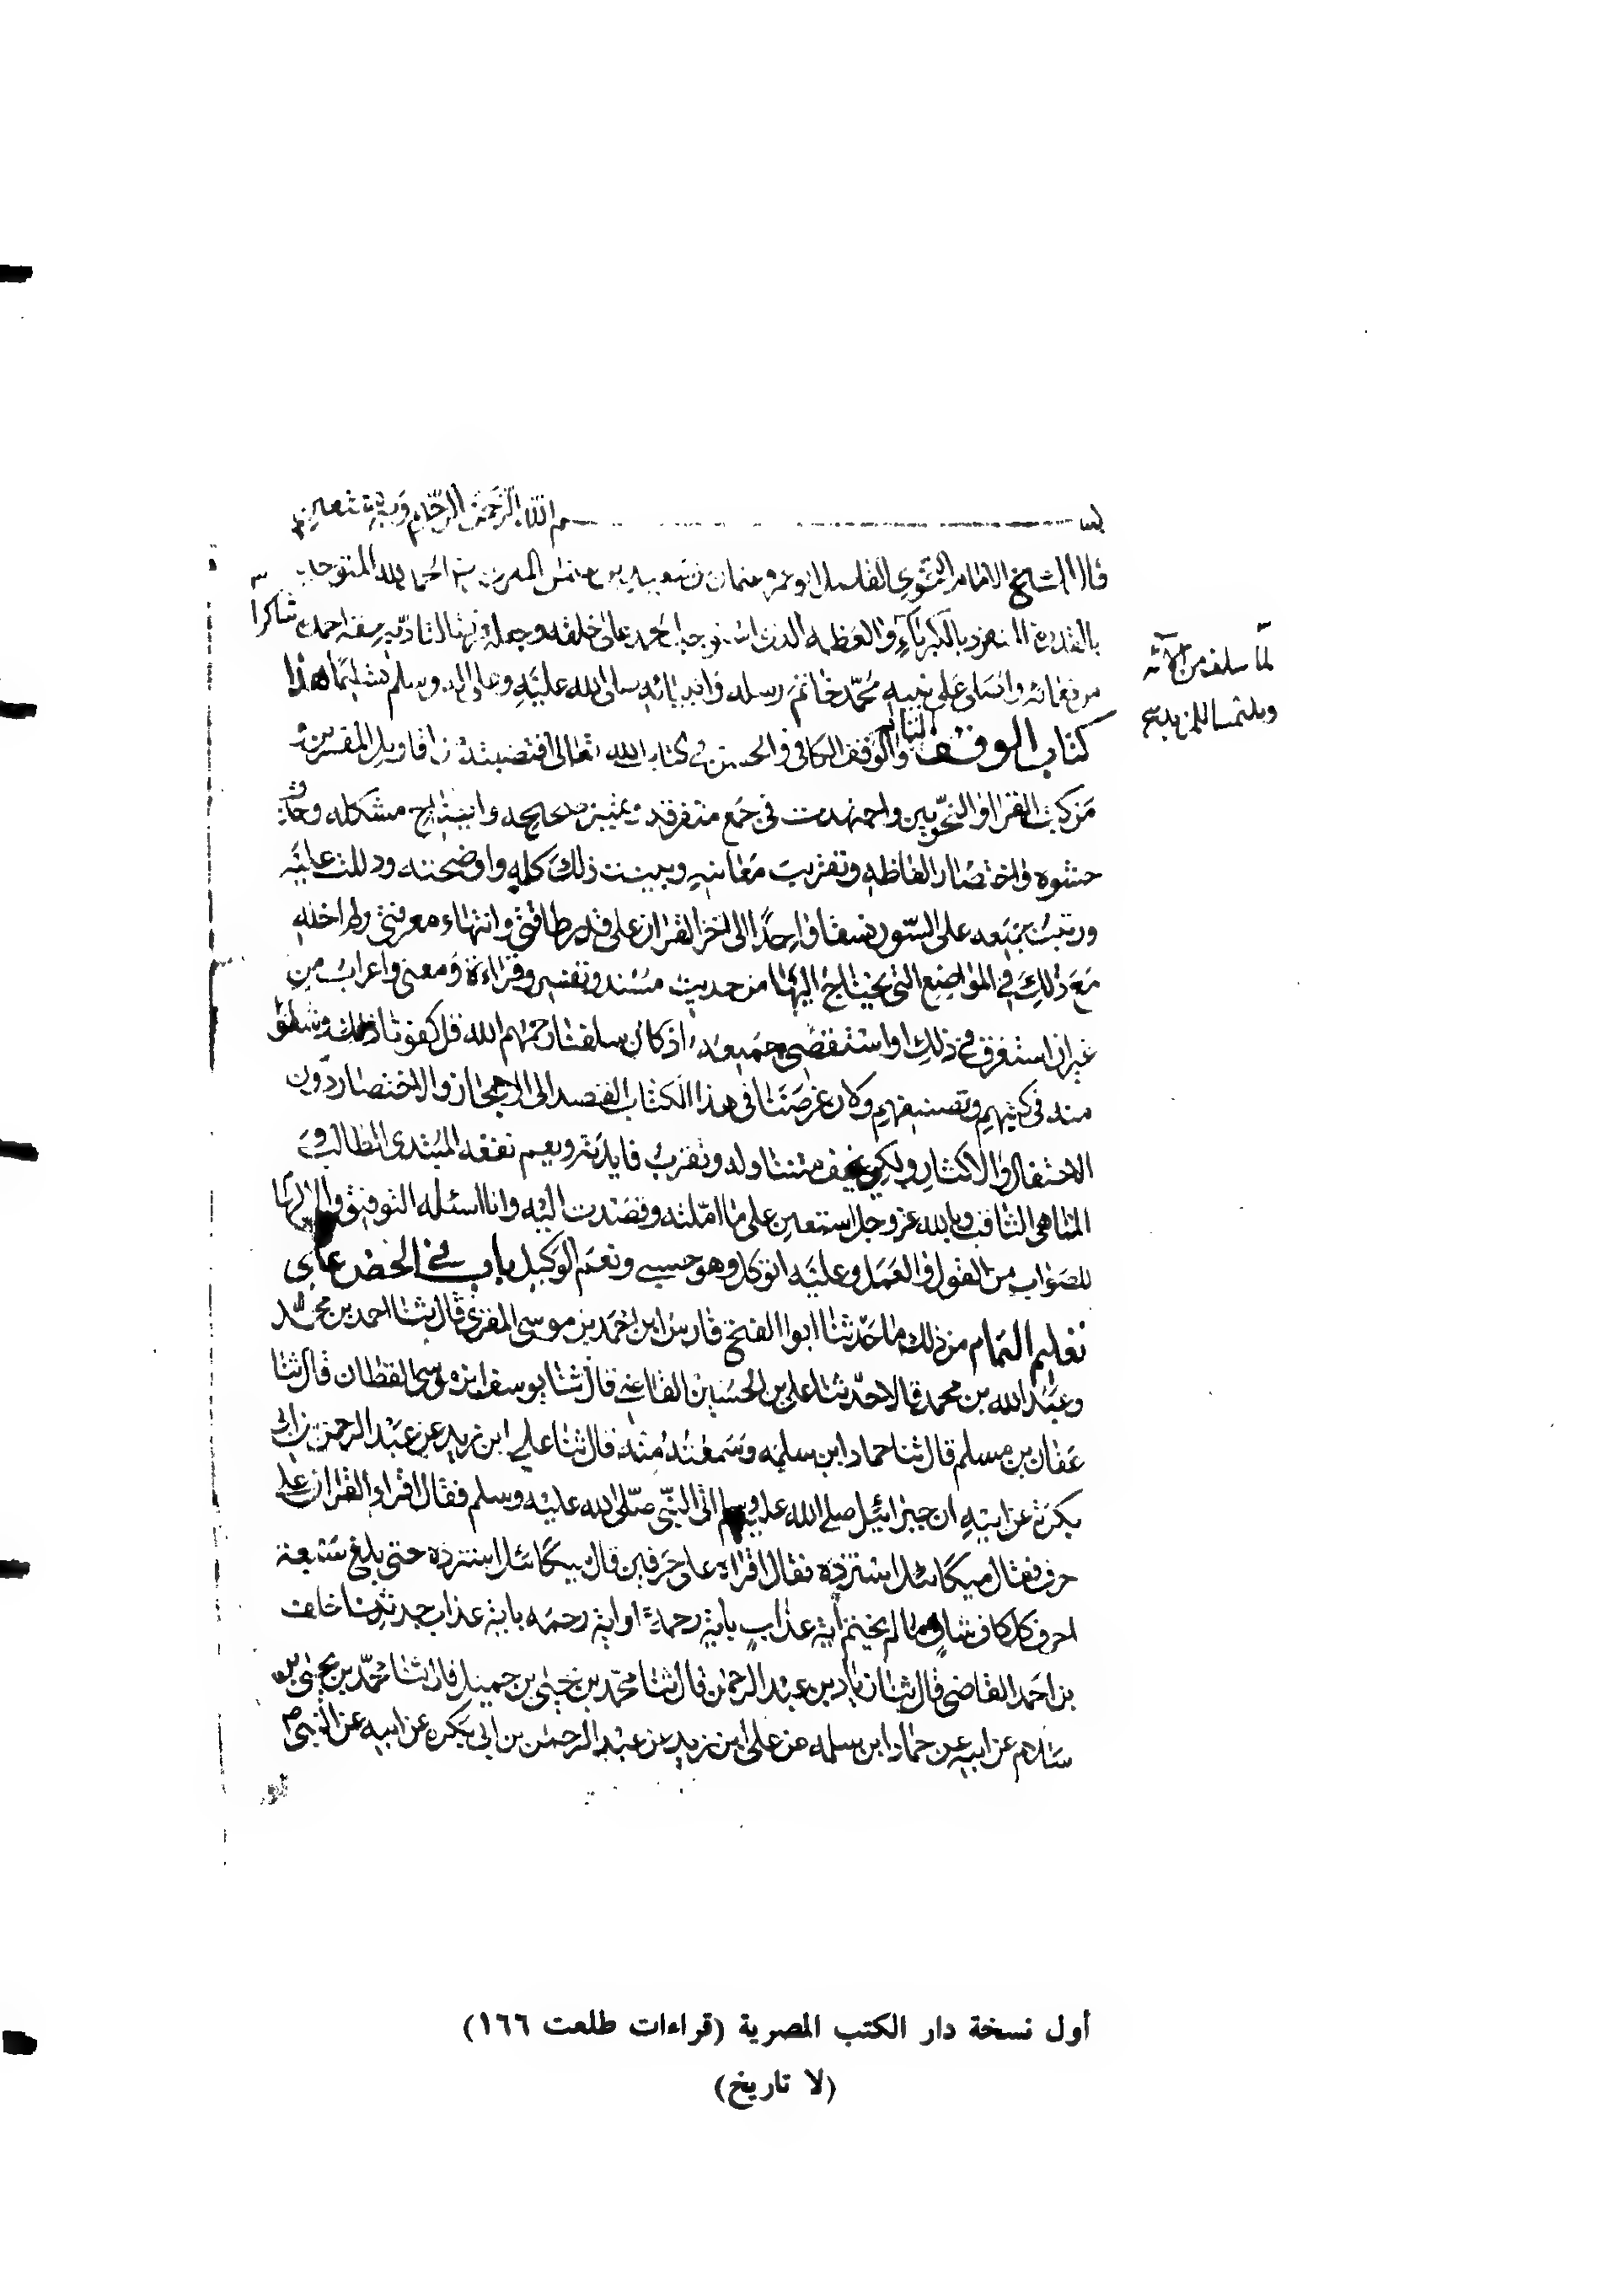 بسم الله الرحمن الرحيم وبه نستعين
قال الشيخ الامام المقري الفاضل ابو عمرو عثمان بن سعيد بن المقري الحمد لله المتوحد
بالقدرة المنفرد بالكبرياء والعظمه الذى استوجب الحمد على خلقه وجعله احمده شاكرا
لما سلف من آلائه
وملتمسا للمزيد
من نعمائه واصلى على نبيه محمد خاتم رسله وانبيائه صلى الله عليه وعلى اله وسلم تسليما هذا
كتاب الوقف التام والوقف الكافي والحسن في كتاب الله تعالى اقتضبته من اقاويل المفسرين و
من كتب القراء والنحويين واجتهدت في جمع متفرقه وتمييز صحيحه وايضاح مشكله وحذف
حشوه واختصار الفاظه وتقريب معانيه وبينت ذلك كله واوضحته ودللت عليه
ورتبت جميعه على السور نسقا واحدا الى اخر القران على قدر طاقتى وانتهاء معرفتى
مع ذلك في المواضع التى يحتاج اليها من حديث مسند وتفسير وقراءة ومعنى واعراب من
غير ان استغرق في ذلك او استقصى جميعه اذ كان سلفنا رحمهم الله قد كفونا ذلك
منه في كتبهم وتصنيفهم وكان غرضنا في هذا الكتاب القصد الى الايجاز والاختصار دون
الاحتفال والاكثار ولكى يخف متناوله وتقرب فايدته ويعم نفعه المبتدى الطالب و
المتناهى الثاقب وبالله عز وجل استعين على ما املته وقصدت اليه وانا اسئله التوفيق
للصواب من القول والعمل وعليه اتوكل وهو حسبي ونعم الوكيل باب في الحض على
تعليم التمام من ذلك ما حدثنا ابو الفتح فارس ابن احمد بن موسى المقرى قال ثنا احمد بن محمد
وعبد الله بن محمد قالا حدثنا على بن الحسين القاضي قال ثنا يوسف ابن موسى القطان قال ثنا
عفان بن مسلم قال ثنا حماد ابن سلمه وسمعته منه قال ثنا علي ابن زيد عن عبد الرحمن بن ابى
بكرة عن ابيه ان جبرائيل صلى الله عليه وسلم اتى النبى صلى الله عليه وسلم فقال اقراء القران على
حرف فقال ميكائيل استزده فقال اقراء على حرفين قال ميكائيل استزده حتى بلغ سبعة
احرف كل كاف شاف ما لم يختم اية عذاب باية رحمة او اية رحمه باية عذاب حدثنا خلف
بن احمد القاضى قال ثنا زياد بن عبد الرحمن قال ثنا محمد بن يحيى بن حميد قال ثنا محمد بن يحيى بن
سلام عن ابيه عن حماد ابن سلمه عن على ابن زيد عن عبد الرحمن بن ابي بكره عن ابيه عن النبى
أول نسخة دار الكتب المصرية (قراءات طلعت ١٦٦)
(لا تاريخ)